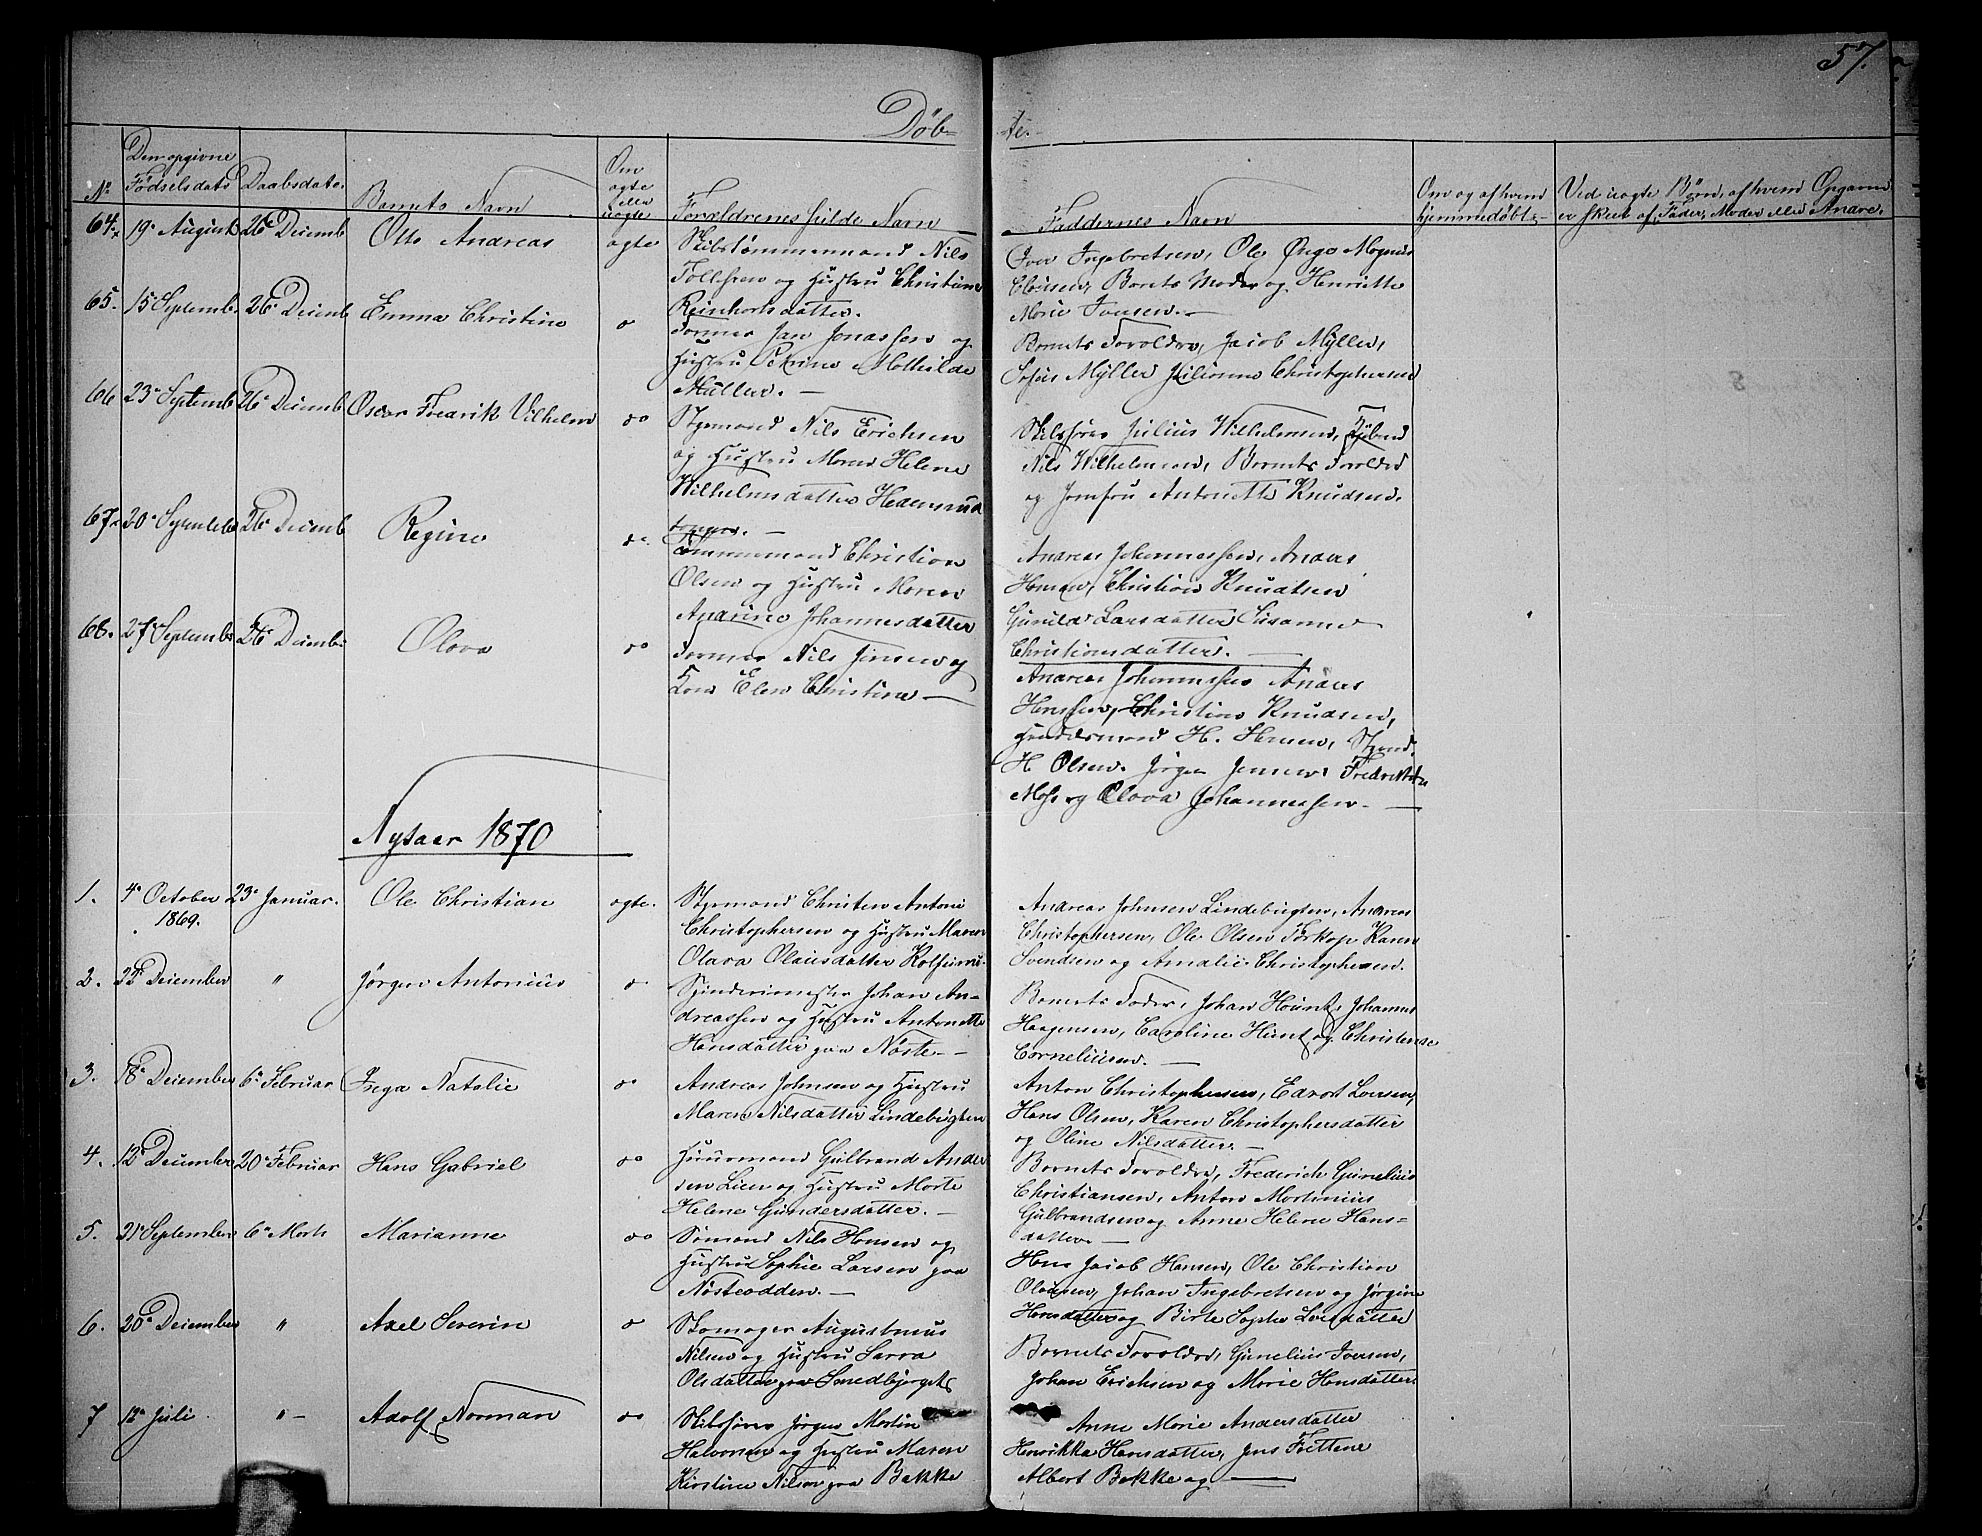 57.
Døb-
te.
No
Den opgivne
Fødselsdato
Daabsdato.
Barnets Navn
Om
ægte
eller
uægte
Forældrenes fulde Navn
Faddernes Navn
Om og af hvem
hjemmedøbt.
Ved uægte Børn, af hvem Opgaven
er skeet af Fader, Moder eller Andre.
64. 19 August 26 Decemb Otto Andreas ægte
Skibstømmermand Nils
Tollefsen og Hustru Christine
Reinhartsdatter.
Iver Ingebretsen, Ole Magnus
Barnets Moder og Henriette
Marie Iversen.
65. 15 Septemb. 26 Decemb Emma Christine do
Former Jan Jonassen og
Hustru Petrine Mathilde
Müller.
Barnets Forældre, Jacob Myller,
Myller Christophersen
66 23 Septemb 26 Decemb Oscar Fredrik Vilhelm do
Styrmand Nils Erichsen
og Hustru Maren Helene
Wilhelmsdatter
Skibsfører Julius Wilhelmsen,
Nils Wilhelmsen, Barnets Forældre
og Jomfru Antonette Knudsen.
67. 20 Septembr 26 Decemb Regine do
Tømmermand Christian
Olsen og Hustru Maren
Andrine Johannesdatter
Andreas Johannessen, Anders
Hansen, Christian Knudtsen
Gunild Larsdatter Susanne
Christiansdatter.
68. 27 Septemb 26 Decemb Olava do
Former Nils Jensen og
Kone Elen Christine
Andreas Johannessen Anders
Hanssen, Christian Knudsen,
H. Hansen, Styrmd.
H. Olsen. Jørgen Jensen,
Moss og Olava Johannessen.
Nytaar 1870
1. 4 October 23 Januar. Ole Christian ægte.
1869.
Styrmand Christen Antoni
Christophersen og Hustru Maren
Olava Olausdatter
Andreas Johnsen Lindebugten, Andreas
Christophersen, Ole Olsen Torkop Karen
Svendsen og Amalie Christophersen.
2. 22 December " Jørgen Antonius do
Spinderimester Johan An-
dreassen og Hustru Antonette
Hansdatter paa Nøste
Barnets Fader, Johan Hount, Johannes
Haagensen, Caroline Hunt og Christense
Corneliusen.
3. 18 December 6 Februar Inga Natalie do
Andreas Johnsen og Hustru
Maren Nilsdatter Lindebugten
Anton Christophersen, Edvart Larsen,
Hans Olsen, Karen Christophersdatter
og Oline Nilsdatter.
4. 12 December 20 Februar Hans Gabriel do
Huusmand Gulbrand Ander
sen Lien og Hustru Marte
Helene Gundersdatter.
Barnets Forældre, Frederich Gunelius
Christiansen, Anton Martinius
Gulbrandsen og Anne Helene Hans-
datter.
5. 21 September 6 Marts Marianne do
Sømand Nils Hansen og
Hustru Sophie Larsen paa
Nøsteodden.
Hans Jacob Hansen, Ole Christian
Olausen, Johan Ingebretsen og Jørgine
Hansdatter og Birte Sophie Larsdatter
6. 20 December " Axel Severin do
Skomager Augustinius
Nilsen og Hustru Sarra
Olsdatter paa Smedbjerget
Barnets Forældre, Gunelius Iversen,
Johan Erichsen og Marie Hansdatter.
7 12 Juli " Adolf Norman do
Skibsfører Jørgen Martin
Halvorsen og Hustru Maren
Kirstine Nilsen paa Bakke
Anne Marie Andersdatter
Henrikka Hansdatter, Jens Frittene
Albert Bakke og